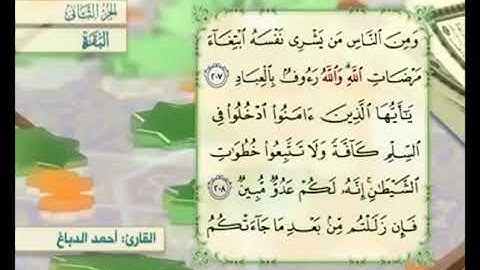 الجزء الثاني
البقرة
وَمِنَ النَّاسِ مَن يَشْرِى نَفْسَهُ ابْتِغَآءَ
مَرْضَاتِ اللَّهِ وَاللَّهُ رَءُوفٌ بِالْعِبَادِ ٢٠٧
يَـٰٓأَيُّهَا الَّذِينَ ءَامَنُوا ادْخُلُوا فِى
السِّلْمِ كَآفَّةً وَلَا تَتَّبِعُوا خُطُوَاتِ
الشَّيْطَانِ إِنَّهُ لَكُمْ عَدُوٌّ مُّبِينٌ ٢٠٨
فَإِن زَلَلْتُم مِّن بَعْدِ مَا جَآءَتْكُمُ
القارئ: أحمد الدباغ